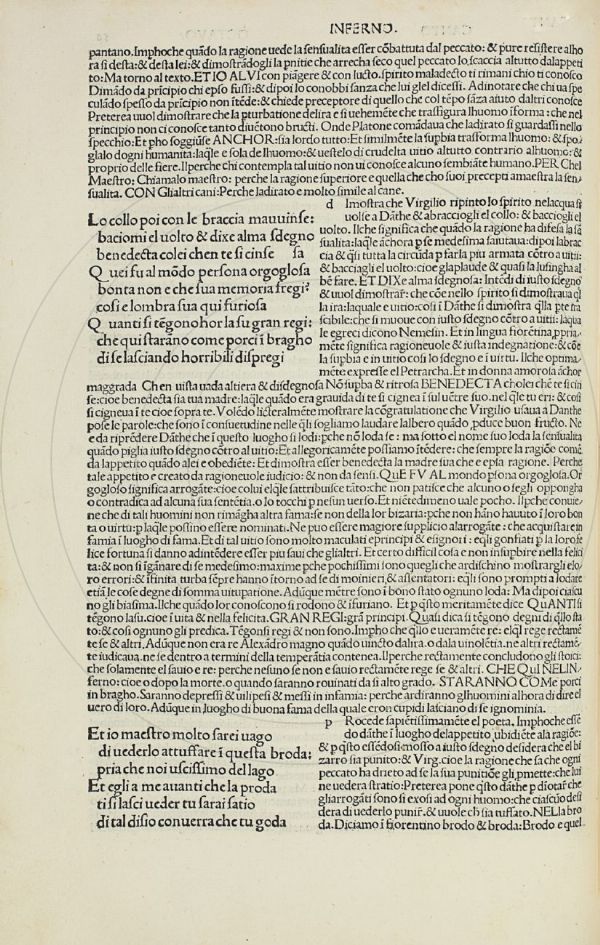 INFERNO.
pantano. Imphoche quãdo la ragione uede la sensualita esser cõbattuta dal peccato: & pure resistere alho
ra si desta: & desta lei: & dimostrãdogli la pnitie che arrecha seco quel peccato lo scaccia al tutto dal appeti
to: Ma torno al texto. ET IO A LVI con piãgere & con lucto. spirito maladecto ti rimani chio ti conosco
Dimãdo da prĩcipio chi epso fussi: & dipoi lo conobbi sanza che lui gliel dicessi. Adinotare che chi ua spe
culãdo spesso da prĩcipio non ĩtẽde: & chiede preceptore di quello che col tẽpo sãza aiuto daltri conosce
Preterea uuol dimostrare che la pturbatione delira e si uehemẽte che trasfigura lhuomo ĩ forma: che nel
principio non ci conosce tanto diuẽtono bructi. Onde Platone comãdaua che ladirato si guardassi nello
specchio: Et pho soggiũse ANCHOR: sia lordo tutto: Et similmẽte la supbia trasforma lhuomo: & spo
glalo dogni humanita: laq̃le e sola de lhuomo: & uestelo di crudelta uitio altutto contrario alhuomo: &
proprio delle fiere. Ilperche chi contempla tal uitio non ui conosce alcuno sembiãte humano. PER Chel
Maestro: Chiamalo maestro: perche la ragione superiore e quella che cho suoi precepti amaestra la sen
sualita. CON Glialtri cani: Perche ladirato e molto simile al cane.
Lo collo poi con le braccia mauuinse:
baciomi el uolto & dixe alma sdegno
benedecta colei chen te si cinse sa
Quei fu al mõdo persona orgoglosa
bonta non e che sua memoria fregi?
cosi e lombra sua qui furiosa
Quanti si tẽgono hor la su gran regi:
che qui starano come porci ĩ bragho
di se lasciando horribili dispregi
d Imostra che Virgilio ripinto lo spirito nel acqua si
uolse a Dãthe & abracciogli el collo: & bacciogli el
uolto. Ilche significa che quãdo la ragione ha difesa la sẽ
sualita: laq̃le ãchora p se medesima saiutaua: dipoi labrac
cia & q̃si tutta la circũda p farla piu armata cõtro a uitii:
& bacciagli el uolto: cioe glaplaude & quasi la lusingha al
bẽ fare. ET DIXe alma sdegnosa: Intẽdi di iusto sdegno
& uuol dimostrar: che cõe nello spirito si dimostraua q̃l
la ira: laquale e uitio: cosi ĩ Dãthe si dimostra q̃lla pte ira
scibile: che si muoue con iusto sdegno cõtro a uitii: laqua
le egreci dicono Nemesin. Et in lingua fiorẽtina ppria
mẽte significa ragioneuole & iusta indegnatione: & cõe
la supbia e in uitio cosi lo sdegno e ĩ uirtu. Ilche optima
mẽte expresse el Petrarcha. Et in donna amorosa anchor
maggrada Chen uista uada altiera & disdegnosa Nõ supba & ritrosa BENEDECTA cholei chẽ te si cin
se: cioe benedecta sia tua madre: laq̃le quãdo era grauida di te si cignea ĩ sul uẽtre suo. nel q̃le tu eri: & cosi
si cigneua ĩ te cioe sopra te. Volẽdo litteralmẽte mostrare la cõgratulatione che Virgilio usaua a Danthe
pose le parole: che sono ĩ consuetudine nelle q̃li sogliamo laudare lalbero quãdo pduce buon fructo. Ne
e da riprẽdere Dãthe che ĩ questo luogho si lodi: pche nõ loda se: ma sotto el nome suo loda la sensualita
quãdo piglia iusto sdegno cõtro al uitio: Et allegoricamẽte possiamo ĩtẽdere: che sempre la ragiõe comẽ
da lappetito quãdo alei e obediẽte: Et dimostra esser benedecta la madre sua che e epsa ragione. Perche
tale appetito e creato da ragioneuole iudicio: & non da sensi. QuE FV AL mondo psona orgosa. Or
gogloso significa arrogãte: cioe colui elq̃le sattribuisce tãto: che non patisce che alcuno o segli oppongha
o contradica ad alcuna sua sentẽtia. o lo tocchi p nessun uerso. Et niẽtedimeno uale pocho. Ilpche conuie
ne che di tali huomini non rimãgha altra fama: se non della lor bizaria: pche non hãno hauuto ĩ loro bon
ta o uirtu: p laq̃le possino essere nominati. Ne puo essere magiore supplicio alarrogãte: che acquistare in
famia ĩ luogho di fama. Et di tal uitio sono molto maculati e principi & e signori: e q̃li gonfiati p la loro fe
lice fortuna si danno adintẽdere esser piu saui che glialtri. Et certo difficil cosa e non insupbire nella felici
ta: & non si ĩgãnare di se medesimo: maxime pche pochissimi sono quegli che ardischino mostrargli elo
ro errori: & ĩfinita turba sẽpre hanno ĩtorno ad se di moinieri, & assentatori: eq̃li sono prompti a lodare
etiã le cose degne di somma uituperatione. Adũque mẽtre sono ĩ bono stato ognuno loda: Ma dipoi ciascu
no gli biasima. Ilche quãdo lor conoscono si rodono & ĩfuriano. Et p q̃sto meritamẽte dice QuANTI si
tẽgono lasu. cioe ĩ uita & nella felicita. GRAN REGI: grã principi. Quasi dica si tẽgono degni di q̃llo sta
to: & cosi ognuno gli predica. Tẽgonsi regi & non sono. Impho che q̃llo e ueramẽte re: elq̃l rege rectamẽ
te se & altri, Adũque non era re Alexãdro magno quãdo uincto dalira. o dala uinolẽtia. ne altri rectamẽ
te iudicaua. ne se dentro a termini della temperãtia contenea. Ilperche rectamente concludono gli stoici:
che solamente el sauio e re: perche nessuno se non e sauio rectamẽte rege se & altri. CHE QuI NEL IN
ferno: cioe o dopo la morte. o quando saranno rouinati da si alto grado. STARANNO COMe porci
in bragho. Saranno depressi & uilipesi & messi in infamia: perche ardiranno glhuomini alhora di dire el
uero di loro. Adũque in luogho di buona fama della quale eron cupidi lasciano di se ignominia.
Et io maestro molto sarei uago
di uederlo attuffare ĩ questa broda:
pria che noi uscissimo del lago
Et egli a me auanti che la proda
ti si lasci ueder tu sarai satio
di tal disio conuerra che tu goda
p Rocede sapiẽtissimamẽte el poeta. Imphoche essẽ
do dãthe ĩ luogho delappetito ubidiẽte ala ragiõe:
& p q̃sto essẽdosi mosso a iusto sdegno desidera che el bi
zarro sia punito: & Virg. cioe la ragione che sa che ogni
peccato ha drieto ad se la sua punitiõe gli pmette: che lui
ne uedera stratio: Preterea pone q̃sto dãthe p dĩotar che
gliarrogãti sono si exosi ad ogni huomo: che ciascũo desi
dera di uederlo punir. & uuole ch sia tuffato. NEL la bro
da. Diciamo ĩ fiorentino brodo & broda: Brodo e quel